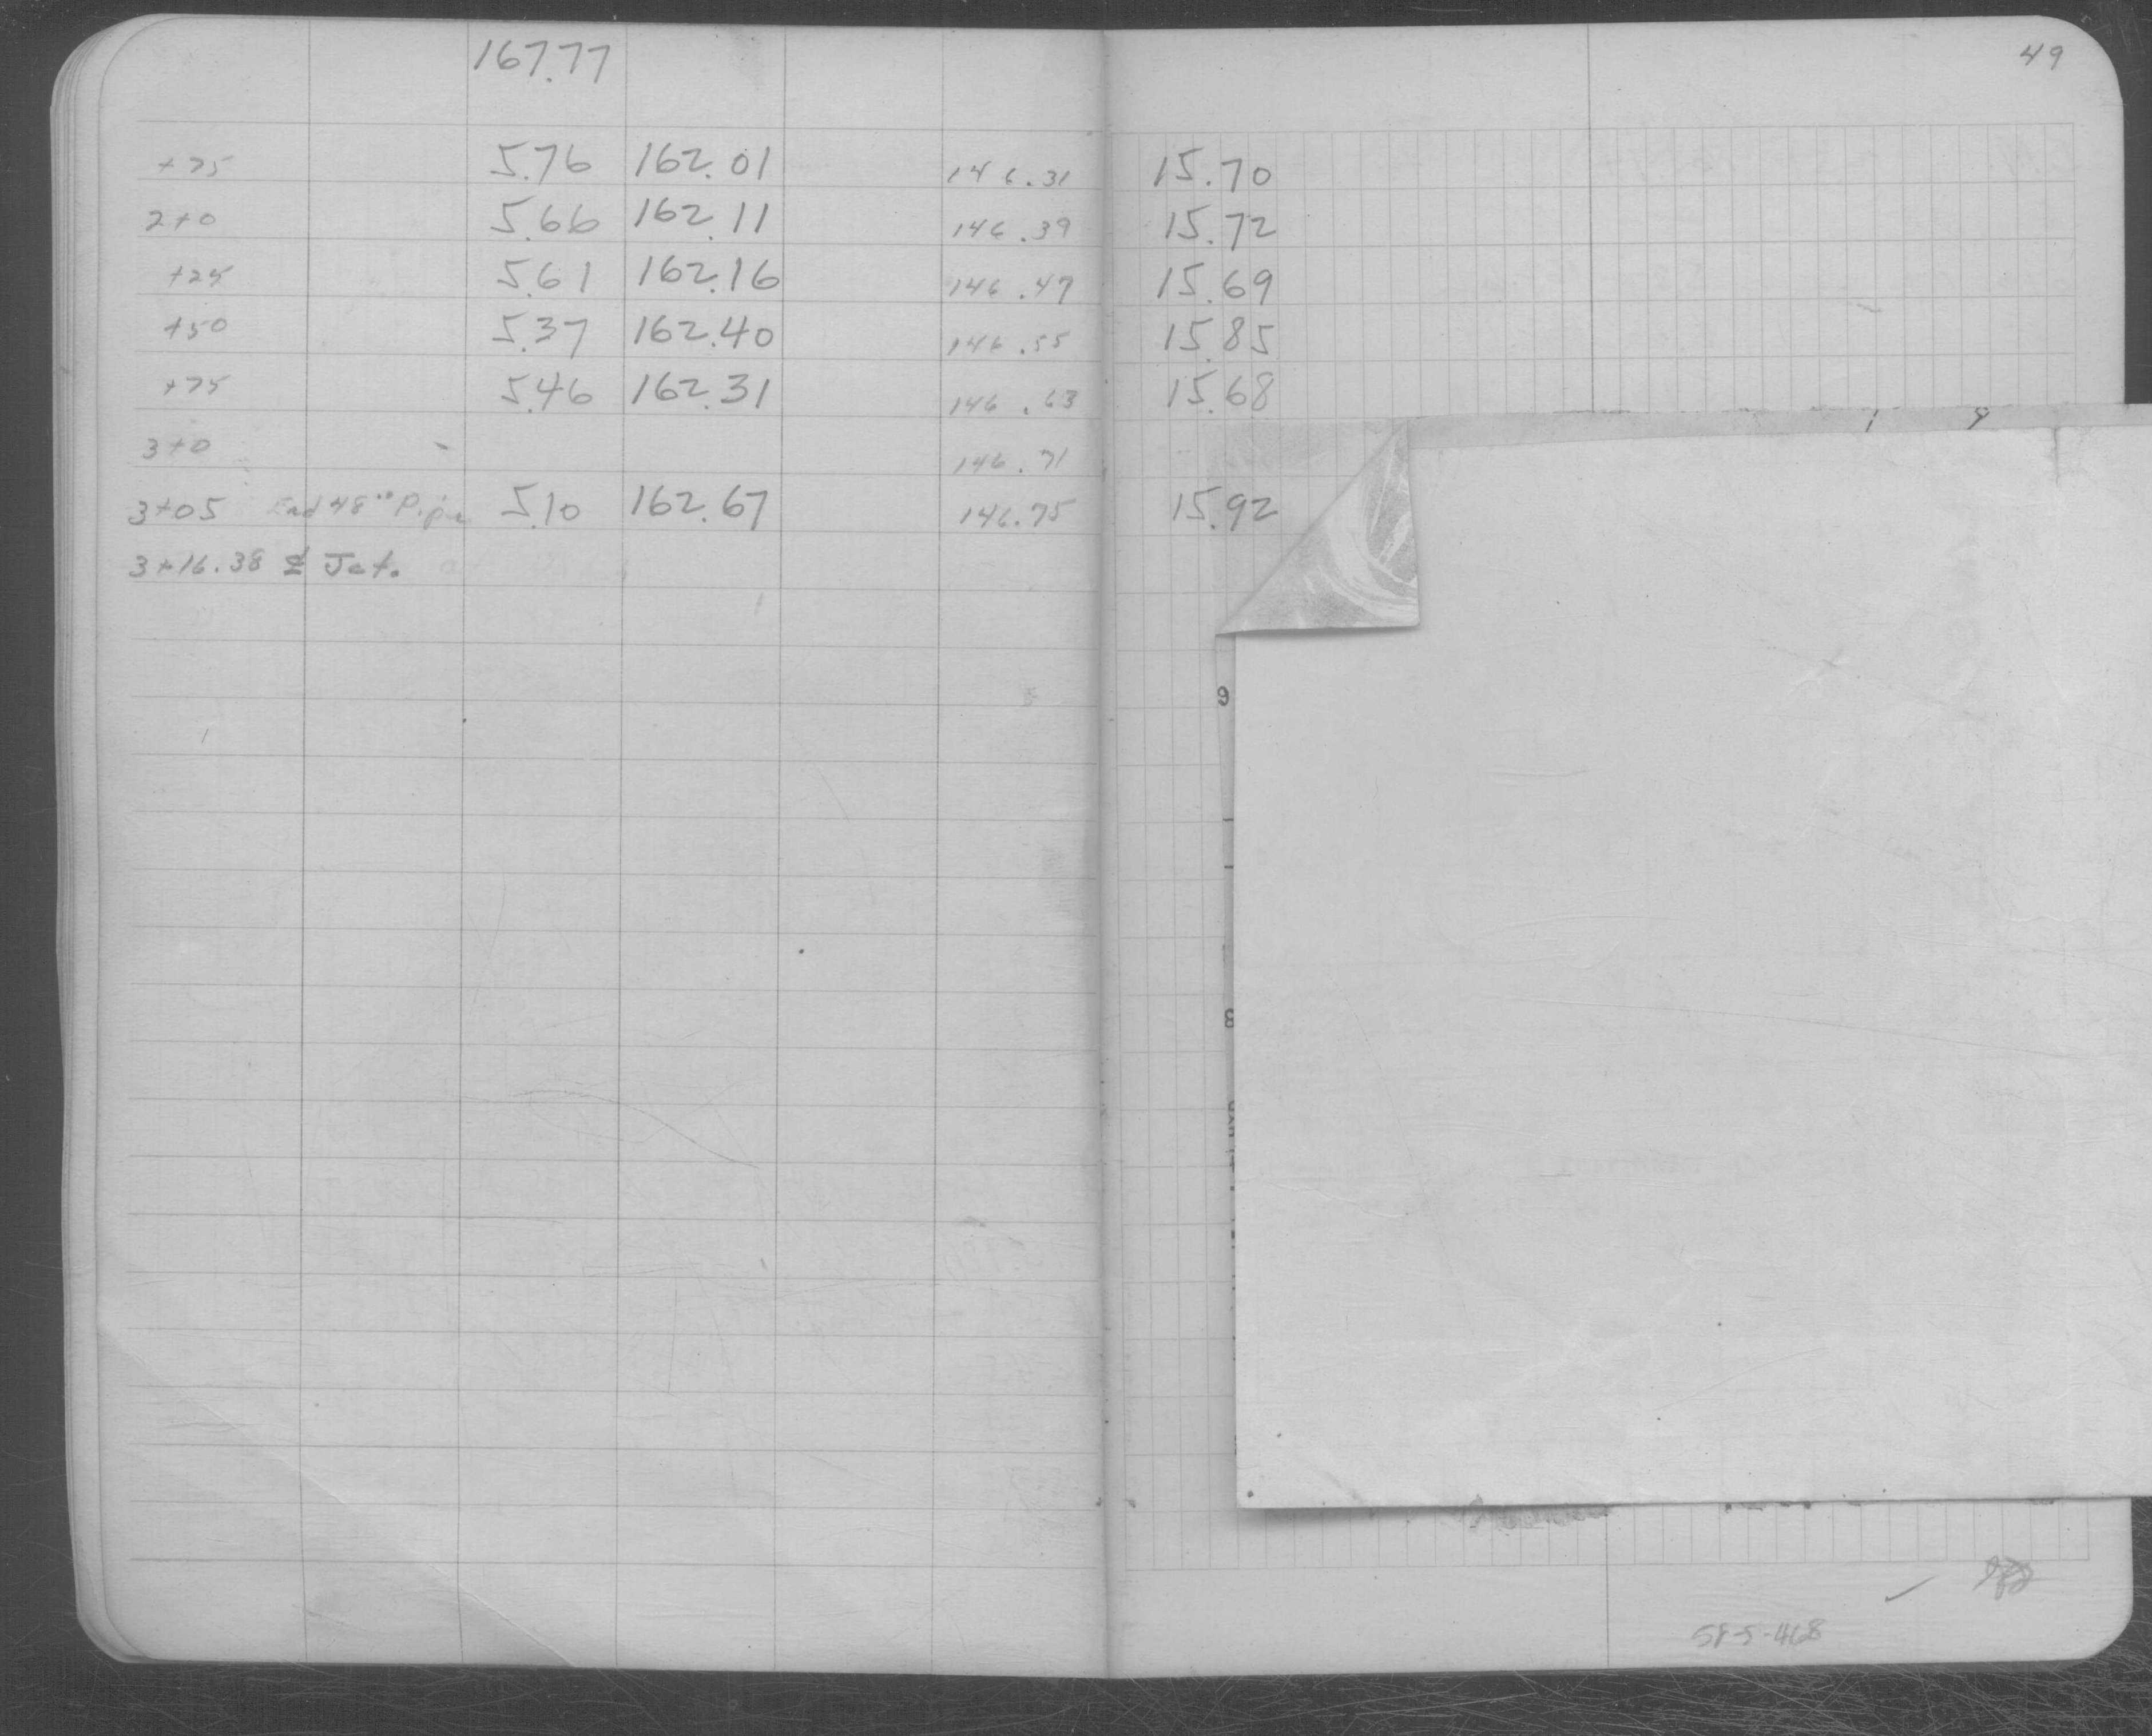 167.77 49
+75 5.76 162.01 146.31 15.70
2+0 5.66 162.11 146.39 15.72
+25 5.61 162.16 146.47 15.69
+50 5.37 162.40 146.55 15.85
+75 5.46 162.31 146.63 15.68
3+0 - 146.71
3+05 End 48" Pipe 5.10 162.67 146.75 15.92
3+16.38 Jct.
9
8
58-5-468